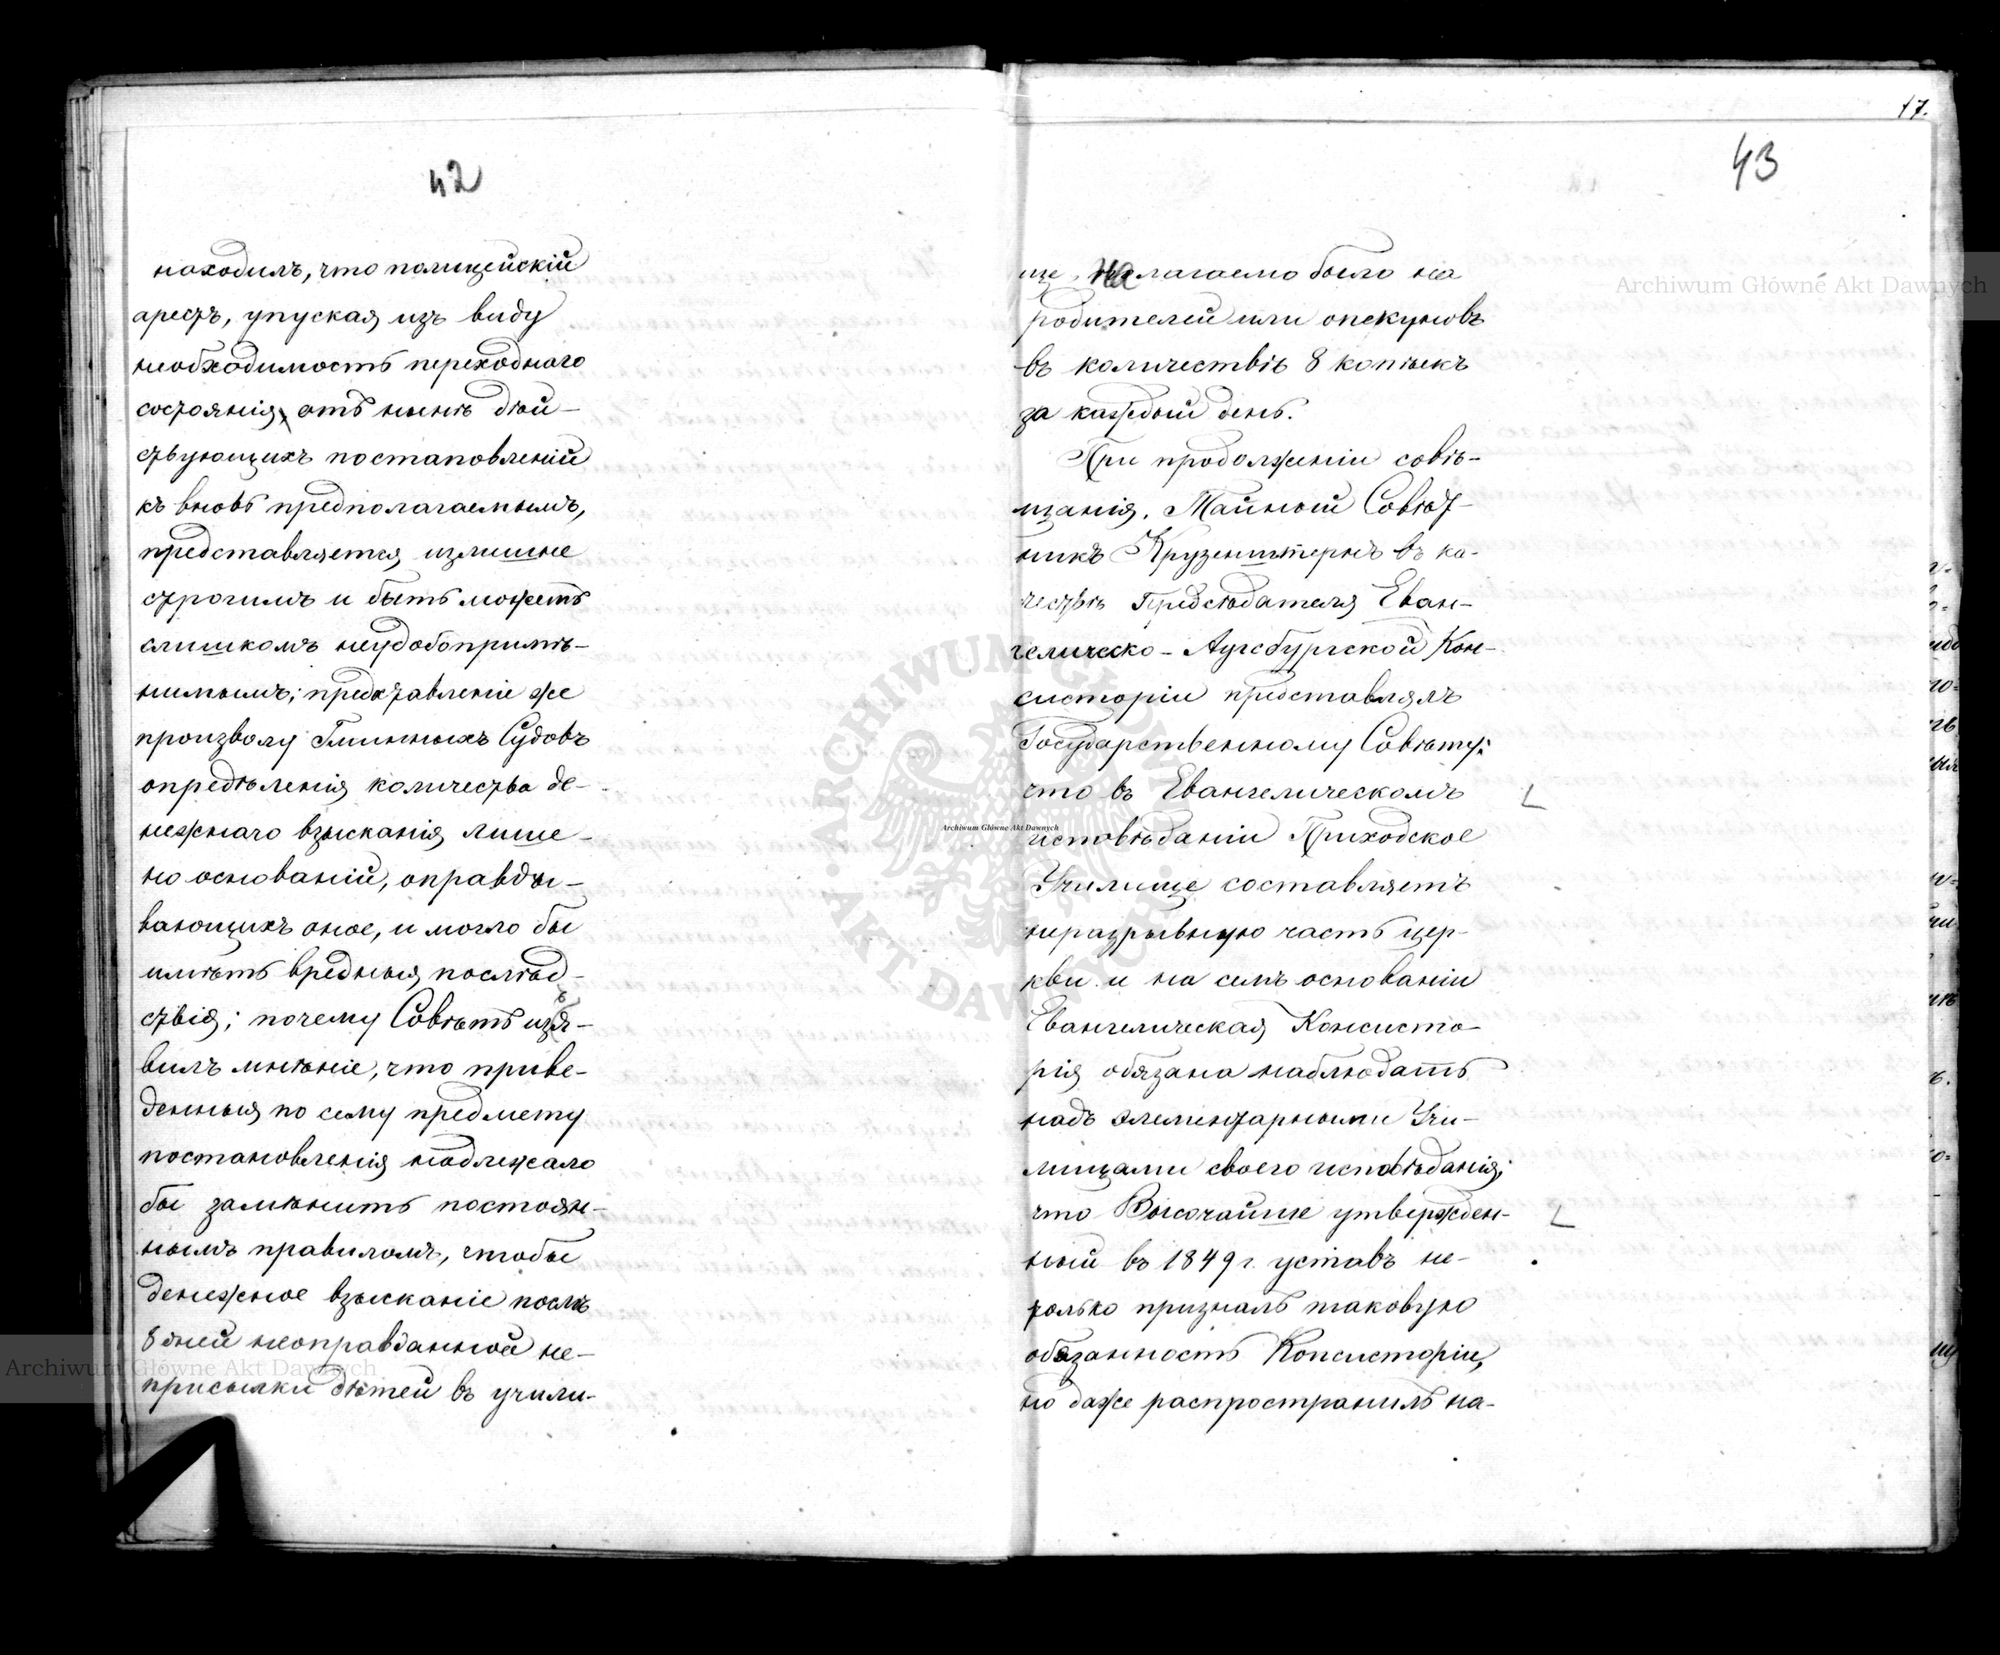 42
находилъ, что полицейскій
арестъ, упуская изъ виду
необходимость переходнаго
состоянія, отъ нынѣ дѣй-
ствующихъ постановленій
къ вновь предполагаемымъ,
представляется излишне
строгимъ и быть можетъ
слишкомъ неудобопримѣ-
нимымъ; предоставленіе же
произволу Гминныхъ Судовъ
опредѣленія количества де-
нежнаго взысканія лише-
но основаній, оправды-
вающихъ оное, и могло бы
имѣть вредныя послѣд-
ствія; почему Совѣтъ изъя-
вилъ мнѣніе, что приве-
денныя по сему предмету
постановленія надлежало
бы замѣнить постоян-
нымъ правиломъ, чтобы
денежное взысканіе послѣ
8 дней неоправданной не-
присылки дѣтей въ учили-
17.
43
ще, налагаемо было на
родителей или опекуновъ
въ количествѣ 8 копѣекъ
за каждый день.
При продолженіи совѣ-
щанія, Тайный Совѣт-
никъ Крузенштернъ въ ка-
чествѣ Предсѣдателя Еван-
гелическо-Аугсбургской Кон-
систоріи представлялъ
Государственному Совѣту:
что въ Евангелическомъ
исповѣданіи Приходское
Училище составляетъ
неразрывную часть цер-
кви и на семъ основаніи
Евангелическая Консисто-
рія обязана наблюдать
надъ элементарными Учи-
лищами своего исповѣданія;
что Высочайше утвержден-
ный въ 1849 г. уставъ не-
только призналъ таковую
обязанность Консисторіи,
но даже распространилъ на-
Archiwum Główne Akt Dawnych
Archiwum Główne Akt Dawnych
Archiwum Główne Akt Dawnych
ARCHIWUM GŁÓWNE AKT DAWNYCH